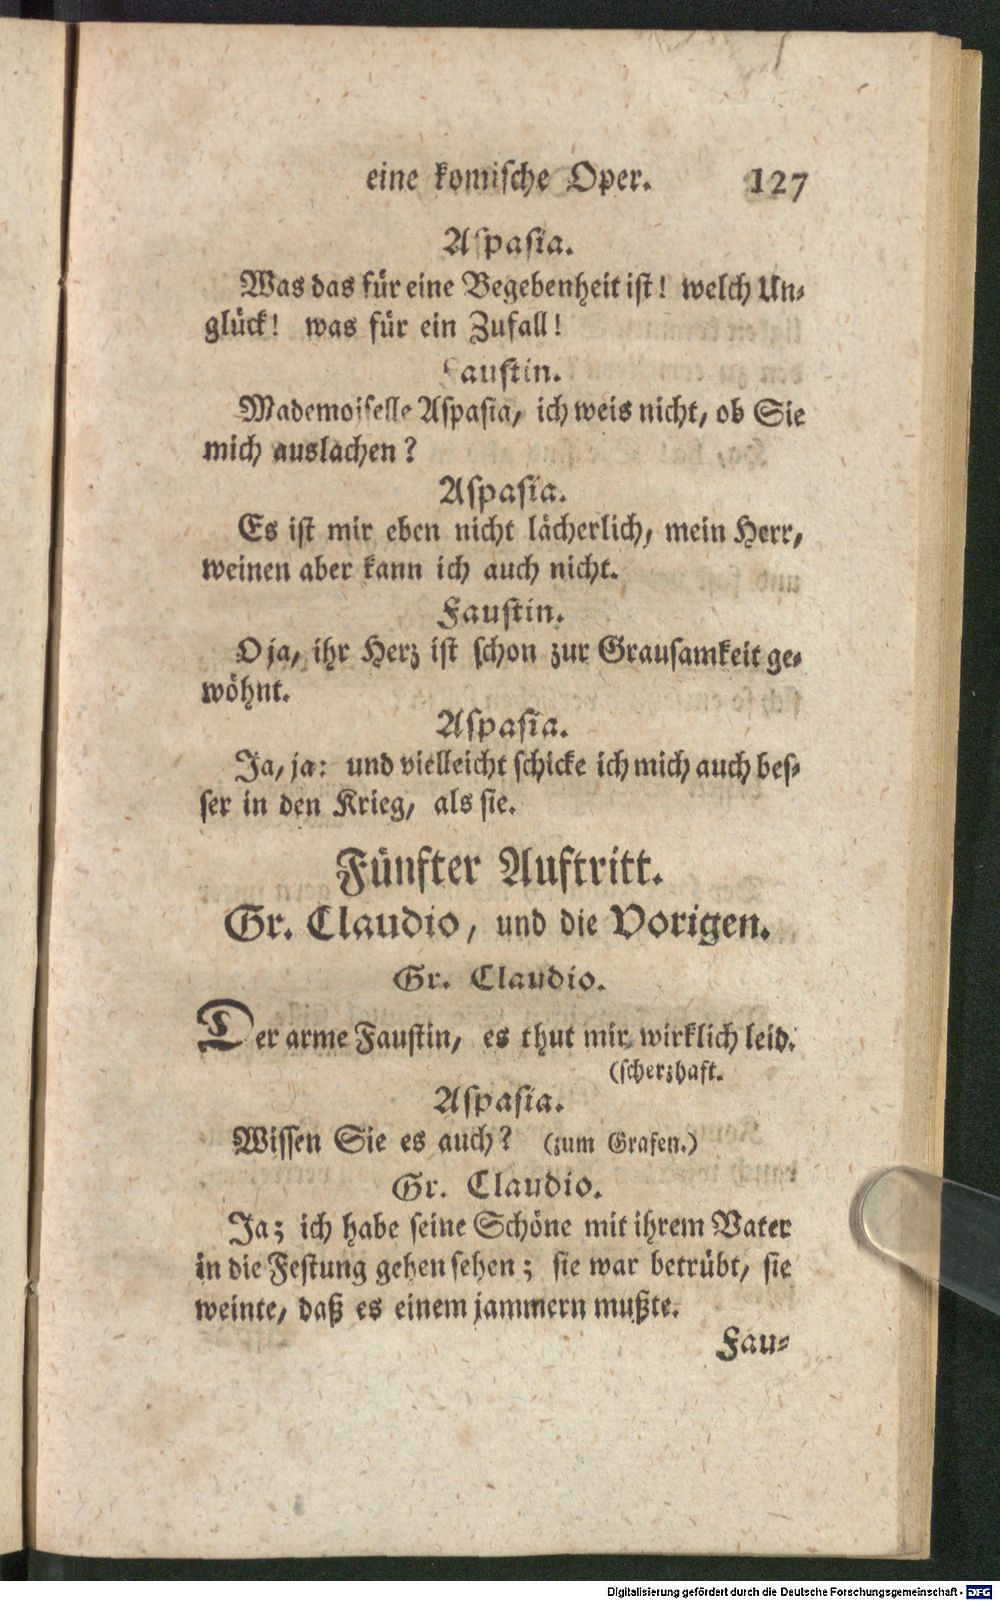 eine komische Oper. 127
Aspasia.
Was das für eine Begebenheit ist! welch Un-
glück! was für ein Zufall!
Faustin.
Mademoiselle Aspasia, ich weis nicht, ob Sie
mich auslachen?
Aspasia.
Es ist mir eben nicht lächerlich, mein Herr,
weinen aber kann ich auch nicht.
Faustin.
O ja, ihr Herz ist schon zur Grausamkeit ge-
wöhnt.
Aspasia.
Ja, ja: und vielleicht schicke ich mich auch bes-
ser in den Krieg, als sie.
Fünfter Auftritt.
Gr. Claudio, und die Vorigen.
Gr. Claudio.
Der arme Faustin, es thut mir wirklich leid.
(scherzhaft.
Aspasia.
Wissen Sie es auch? (zum Grafen.)
Gr. Claudio.
Ja; ich habe seine Schöne mit ihrem Vater
in die Festung gehen sehen; sie war betrübt, sie
weinte, daß es einem jammern mußte.
Fau-
Digitalisierung gefördert durch die Deutsche Forschungsgemeinschaft - DFG